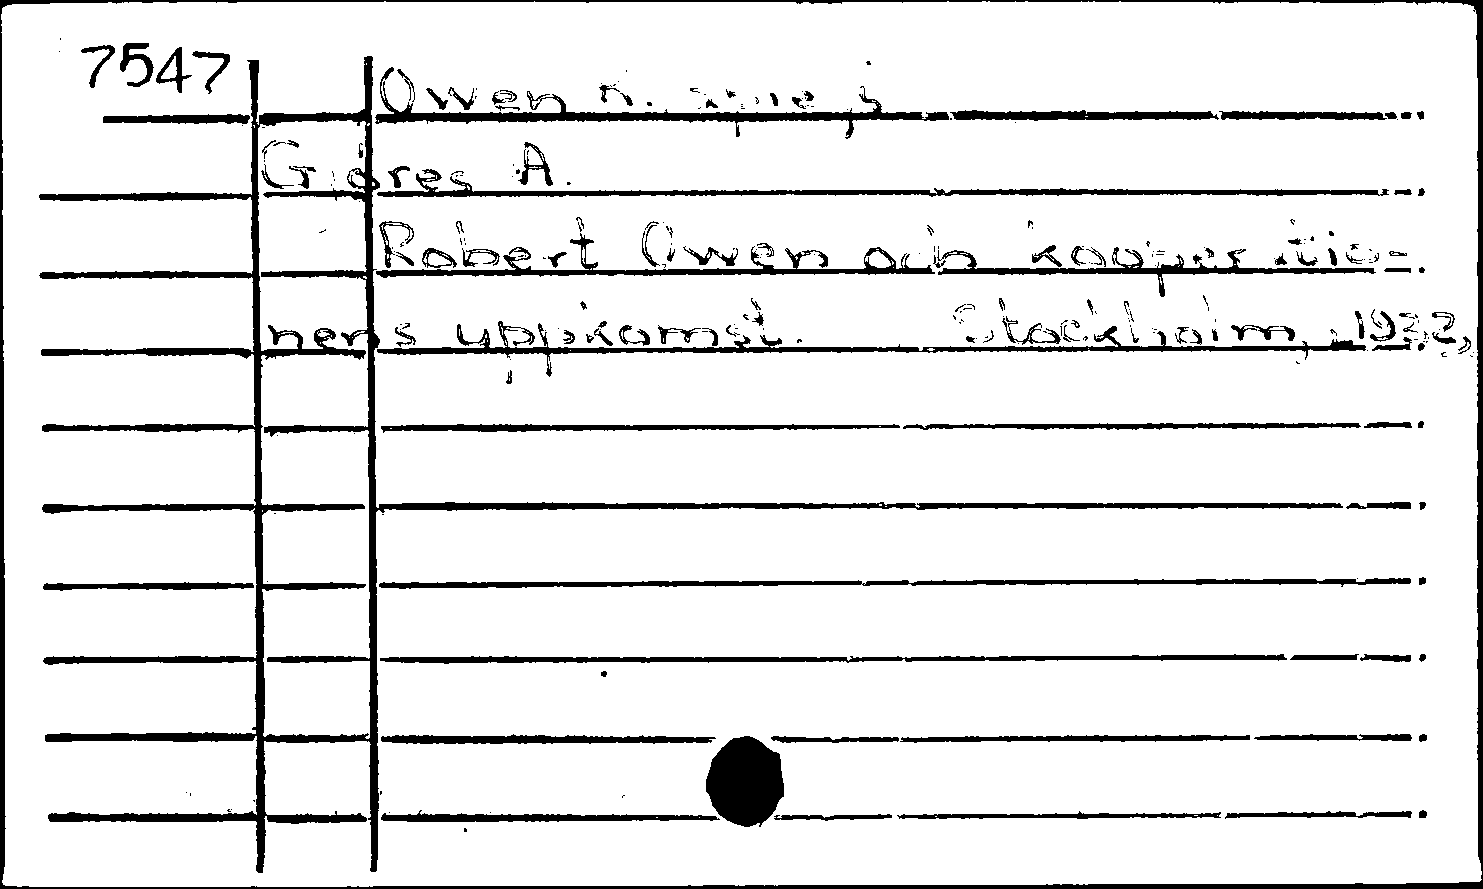 7547
Owen R.
Gjöres A.
Robert Owen och kooperatio-
nens uppkomst. Stockholm, 1932,